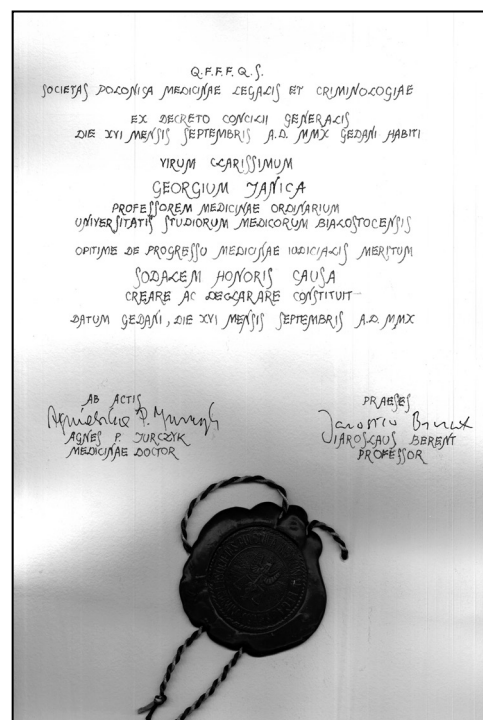 Q.F.F.F.Q.S.
SOCIETAS POLONICA MEDICINAE LEGALIS ET CRIMINOLOGIAE
EX DECRETO CONCILII GENERALIS
DIE XVI MENSIS SEPTEMBRIS A.D. MMX GEDANI HABITI
VIRUM CLARISSIMUM
GEORGIUM JANICA
PROFESSOREM MEDICINAE ORDINARIUM
UNIVERSITATIS STUDIORUM MEDICORUM BIALOSTOCENSIS
OPTIME DE PROGRESSU MEDICINAE IUDICIALIS MERITUM
SODALEM HONORIS CAUSA
CREARE AC DECLARARE CONSTITUIT
DATUM GEDANI, DIE XVI MENSIS SEPTEMBRIS A.D. MMX
AB ACTIS
Agnieszka P. Jurczyk
AGNES P. JURCZYK
MEDICINAE DOCTOR
PRAESES
Jarosław Berent
IAROSLAUS BERENT
PROFESSOR